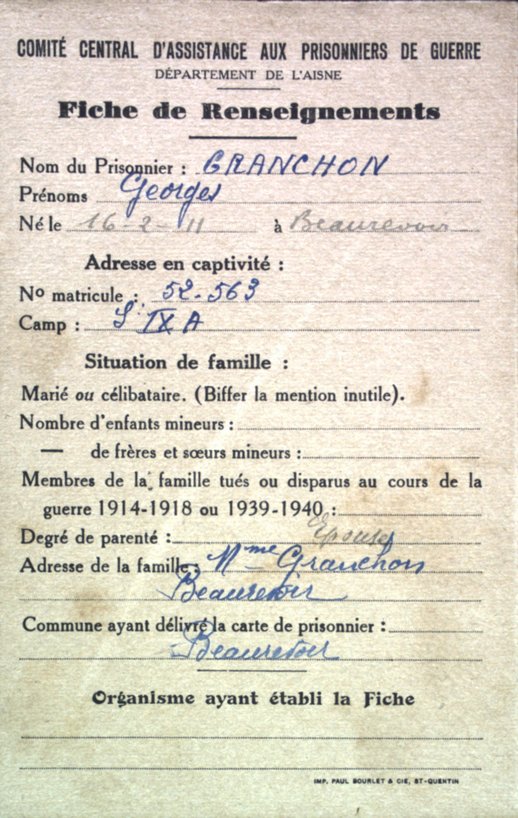 COMITÉ CENTRAL D'ASSISTANCE AUX PRISONNIERS DE GUERRE
DÉPARTEMENT DE L'AISNE
Fiche de Renseignements
Nom du Prisonnier : GRANCHON
Prénoms Georges
Né le 16-2-11 à Beaurevoir
Adresse en captivité :
No matricule : 52-563
Camp : S IX A
Situation de famille :
Marié ou célibataire. (Biffer la mention inutile).
Nombre d'enfants mineurs :
— de frères et sœurs mineurs :
Membres de la famille tués ou disparus au cours de la
guerre 1914-1918 ou 1939-1940 :
Degré de parenté : Epouse
Adresse de la famille : Mme Granchon
Beaurevoir
Commune ayant délivré la carte de prisonnier :
Beaurevoir
Organisme ayant établi la Fiche
IMP. PAUL BOURLET & CIE, ST-QUENTIN